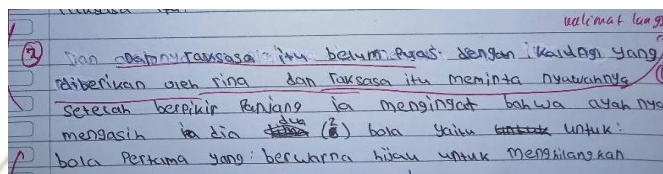 kalimat lang
3 Dan raksasa itu belum puas dengan kalung yang
diberikan oleh rina dan raksasa itu meminta nyawannya
setelah berpikir panjang ia mengingat bahwa ayah nya
mengasih dia dua (2) bola yaitu untuk:
bola Pertama yang: berwarna hijau untuk menghilangkan